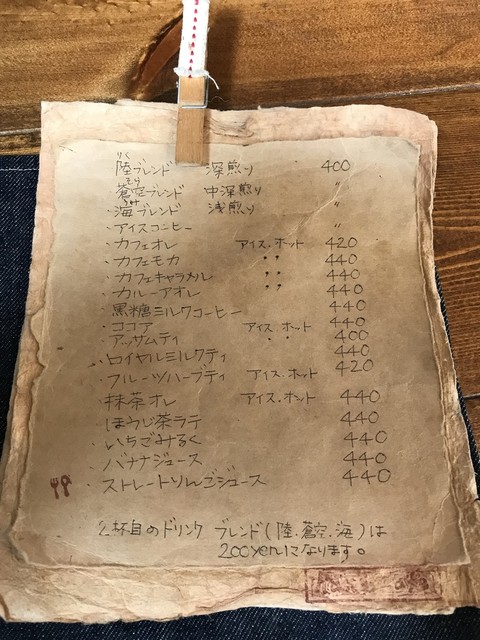 りく
陸ブレンド 深煎り 400
そら
・蒼空ブレンド 中深煎り 〃
うみ
・海ブレンド 浅煎り 〃
・アイスコーヒー 〃
・カフェオレ アイス・ホット 420
・カフェモカ 〃 440
・カフェキャラメル 〃 440
・カルーアオレ 〃 440
・黒糖ミルクコーヒー 440
・ココア アイス・ホット 440
・アッサムティ 〃 400
・ロイヤルミルクティ 440
・フルーツハーブティ アイス・ホット 420
・抹茶オレ アイス・ホット 440
・ほうじ茶ラテ 440
・いちごみるく 440
・バナナジュース 440
・ストレートりんごジュース 440
2杯目のドリンク ブレンド(陸、蒼空、海)は
200yenになります。